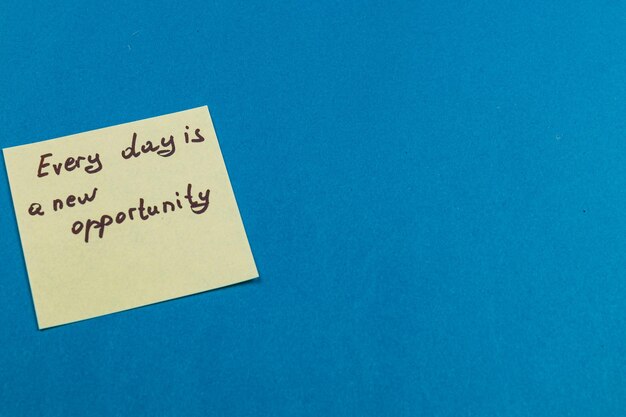 Every day is
a new
opportunity